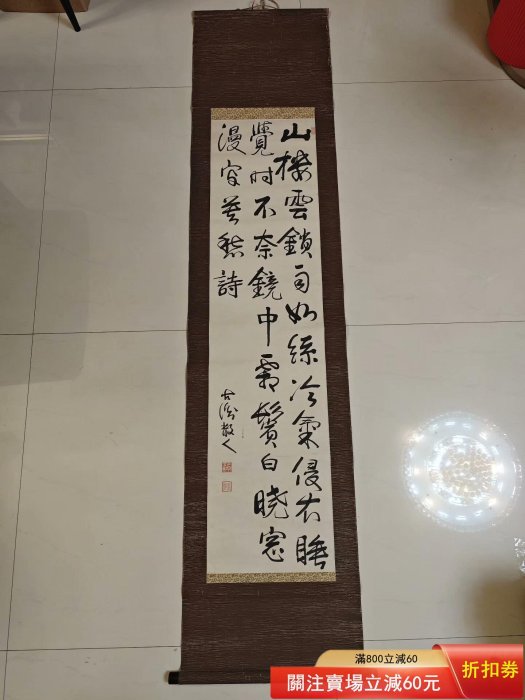 山樓雲鎖雨如絲冷氣侵衣睡
覺時不奈鏡中霜鬢白曉窓
漫寫愁詩
散人
滿800立減60
關注賣場立減60元
折扣券